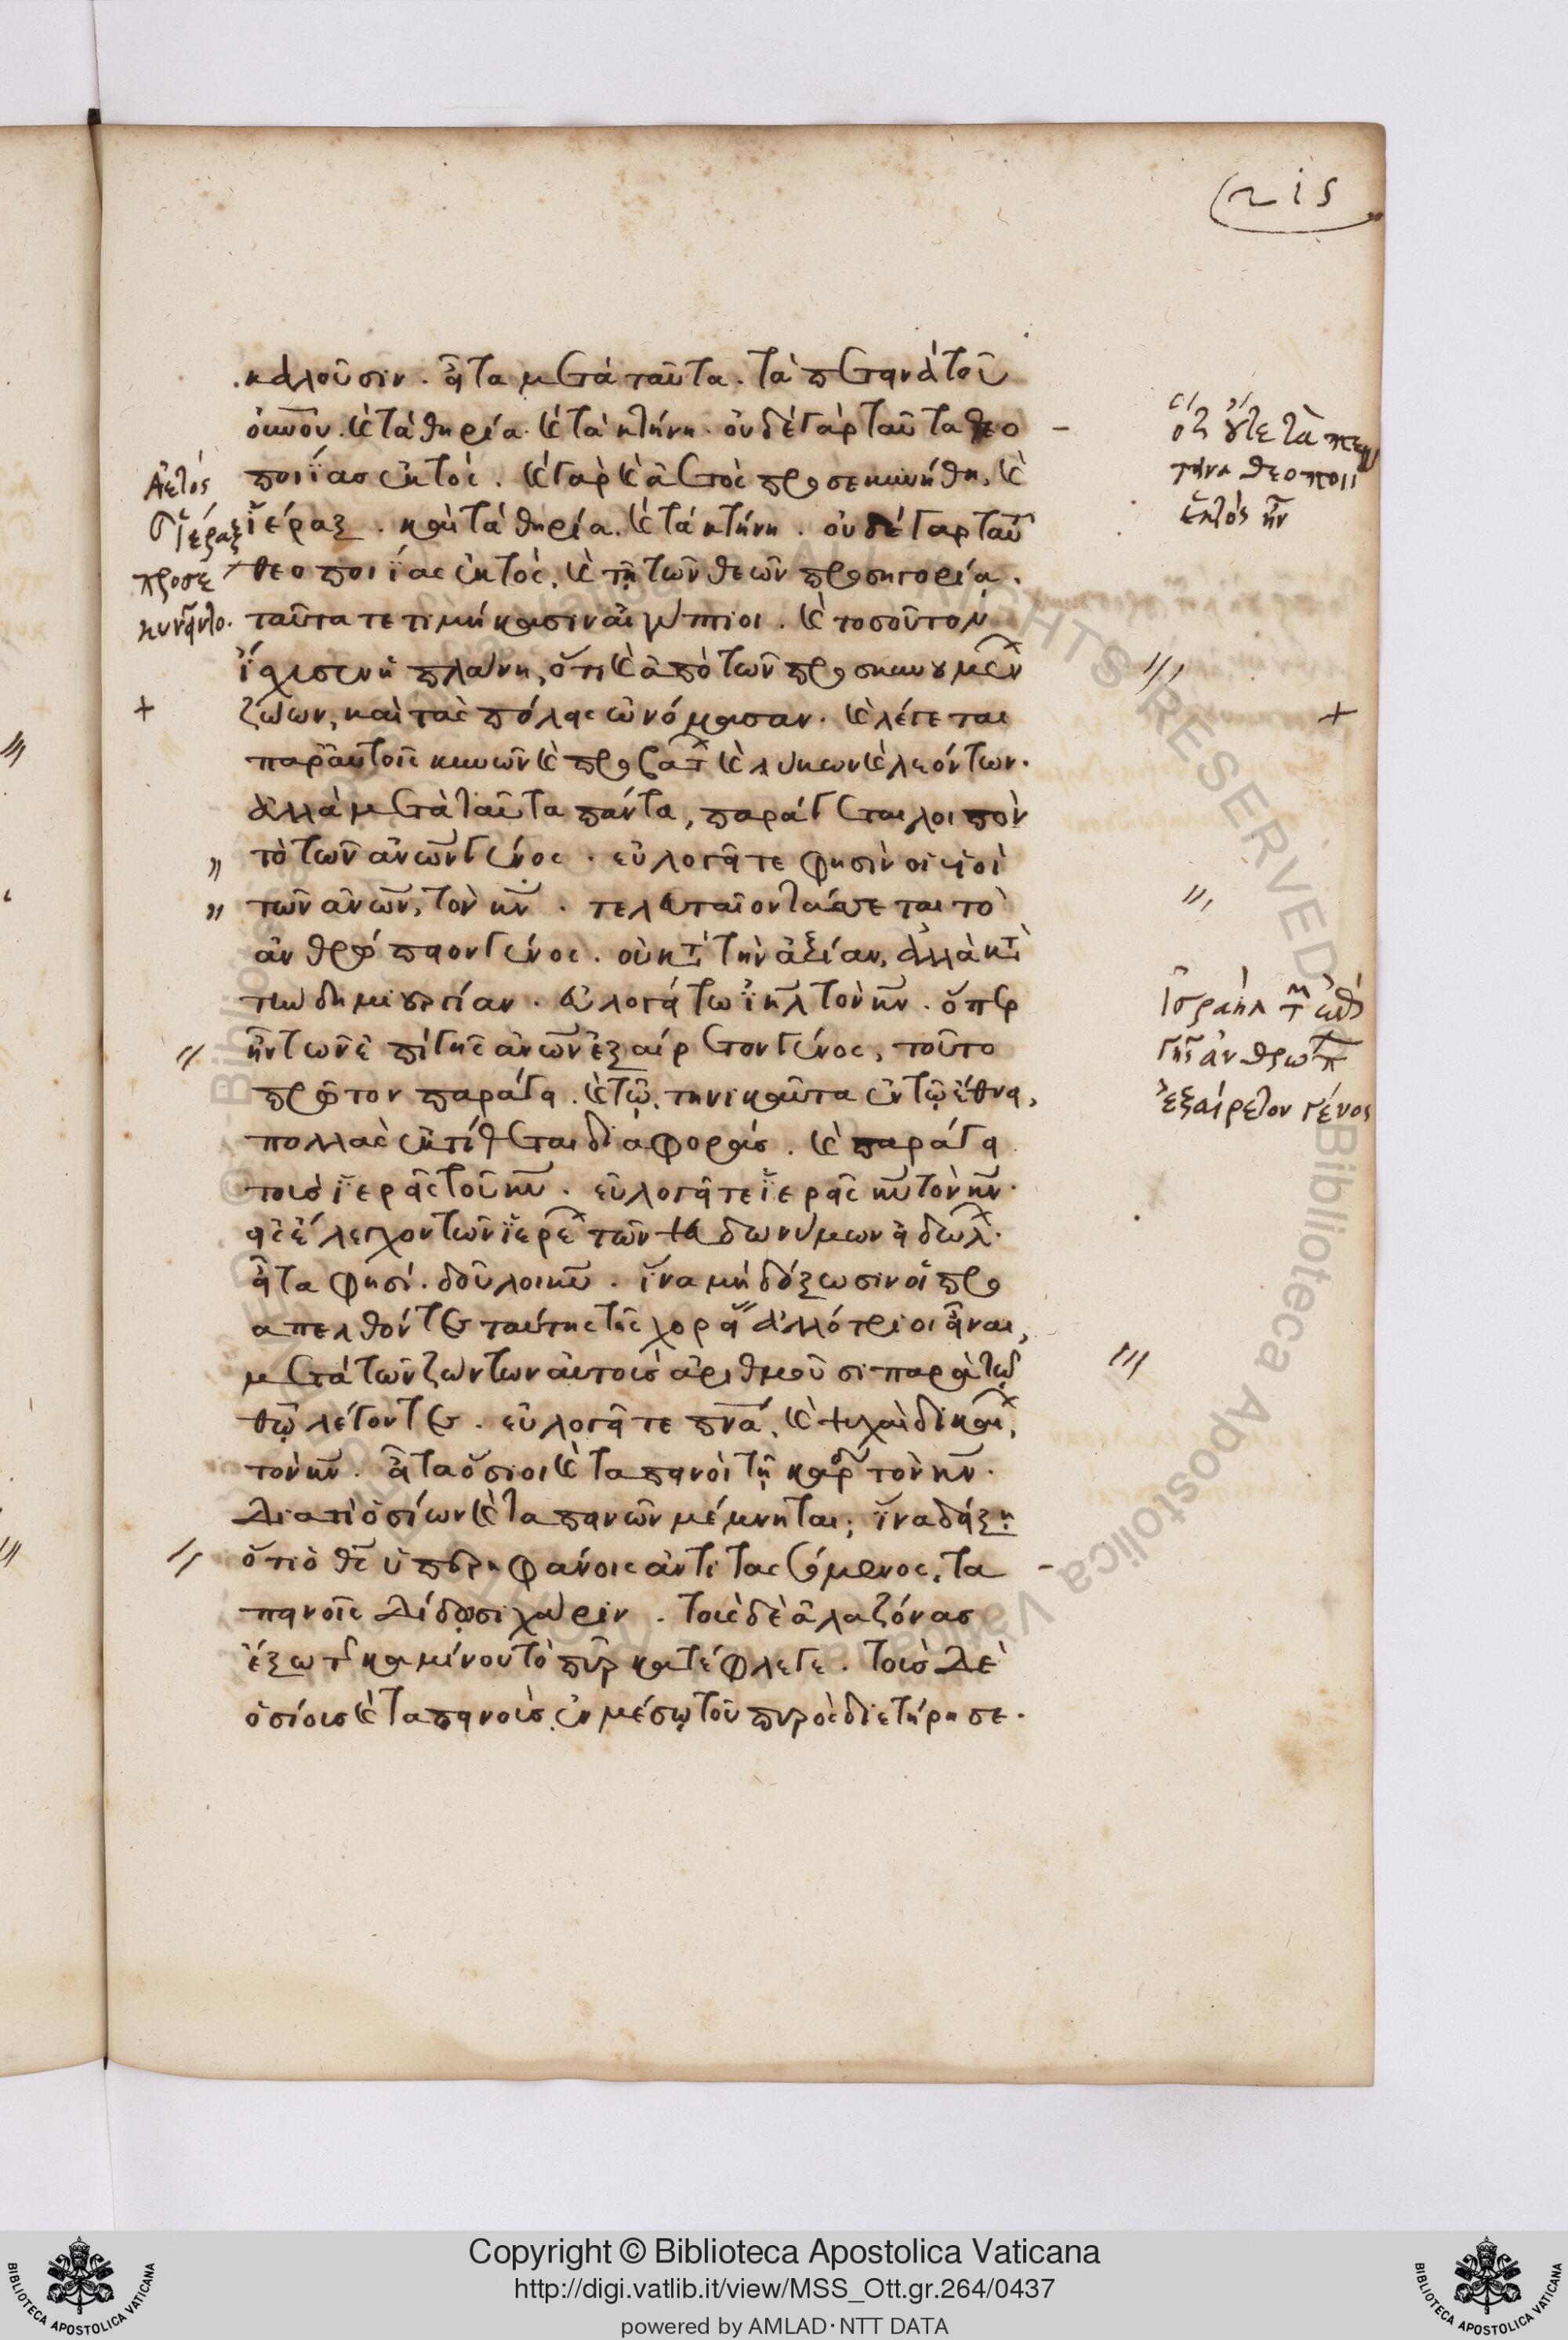 σις
καλοῦσιν. εἶτα μετὰ ταῦτα. τὰ πετεινὰ τοῦ
οὐνοῦ. καὶ τὰ θηρία. καὶ τὰ κτήνη. οὐδὲ γὰρ ταῦτα θεο
ποιΐασ ἐκτός. καὶ γὰρ καὶ ἀετὸς προσεκυνήθη, καὶ
ἱέραξ. καὶ τὰ θηρία. καὶ τὰ κτήνη. οὐδὲ γαρ ταῦ
θεοποιΐας ἐκτός, καὶ τῇ τῶν θεῶν προσηγορίᾳ.
ταῦτα τετιμήκασιν αἰγύπτιοι. καὶ τοσοῦτον
ἴσχυσεν ἡ πλάνη, ὅτι καὶ ἀπὸ τῶν προσκυνουμέν
ζώων, καὶ τὰς πόλεις ὠνόμασαν. καὶ λέγεται
παρ' αὐτοῖς κυνῶν καὶ προβάτ καὶ λύκων καὶ λεόντων.
ἀλλὰ μετὰ ταῦτα πάντα, παράγεται λοιπὸν
τὸ τῶν ἀνων γένος. εὐλογεῖτε φησὶν οἱ υἱοὶ
τῶν ἀνων, τὸν κν. τελευταῖον τάττεται τὸ
ἀνθρώπειον γένος. οὐ κατὰ τὴν ἀξίαν, ἀλλὰ κατὰ
τὴν δημιουργίαν. εὐλογείτω ιηλ τὸν κν. ὅπερ
ἦν τῶν ἐπὶ γῆς ἀνων ἐξαίρετον γένος, τοῦτο
πρῶτον παράγει. καὶ τῷ τηνικαῦτα ἐν τῷ ἔθνει,
πολλὰς ἐντίθεται διαφοράς. καὶ παράγει
τοὺσ ἱερεῖς τοῦ κυ. εὐλογεῖτε ἱερεῖς κυ τὸν κν.
εἰς ἔλεγχον τῶν ἱερέ τῶν ψευδωνύμων εἰδώλ.
εἶτα φησί. δοῦλοι κυ. ἵνα μὴ δόξωσιν οἱ προ
απελθόντες ταύτης τῆς χορεί ἀλλότριοι εἶναι,
μετὰ τῶν ζώντων αὐτοὺσ ἀριθμοῦσι παρὰ τῷ
θῷ λέγοντες. εὐλογεῖτε πνα, καὶ ψυχαὶ δικαί,
τὸν κν. εἶτα ὅσιοι καὶ ταπεινοὶ τῇ καρ τὸν κν.
Διατί ὁσίων καὶ ταπεινῶν μέμνηται; ἵνα δείξῃ
ὅτι ὁ θς ὑπερηφάνοις ἀντιτασσόμενος, τα
πεινοῖς δίδωσι χάριν. τοὺς δὲ ἀλαζόνας
ἔξω τῆς καμίνου τὸ πῦρ κατέφλεγε. τοὺσ δὲ
ὁσίουσ καὶ ταπεινοὺσ, ἐν μέσῳ τοῦ πυρὸς διετήρησε.
Ἀετὸς
ἱέραξ
προσε
κυνεῖντο.
ὅτι οὔτε τὰ πετει
θεοποιι
ἐκτὸς ἦν
Ἰσραὴλ
γῆς ἀνθρώπ
ἐξαίρετον γένος
Copyright © Biblioteca Apostolica Vaticana
http://digi.vatlib.it/view/MSS_Ott.gr.264/0437
powered by AMLAD·NTT DATA
BIBLIOTECA APOSTOLICA VATICANA
BIBLIOTECA APOSTOLICA VATICANA